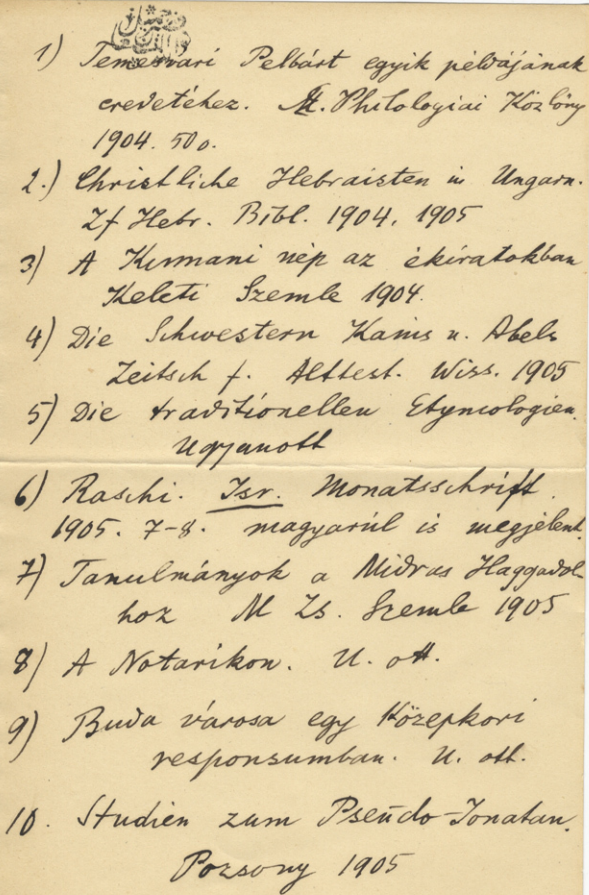 1) Temesvári Pelbárt egyik példájának
eredetéhez. M. Philologiai Közlöny
1904. 50 o.
2.) Christliche Hebraisten in Ungarn.
Zf Hebr. Bibl. 1904, 1905
3) A Kirmani nép az ékiratokban
Keleti Szemle 1904.
4) Die Schwestern Kains u. Abels
Zeitsch f. Alttest. Wiss. 1905
5) Die traditionellen Etymologien.
Ugyanott
6) Raschi. Isr. Monatsschrift.
1905. 7-8. magyarúl is megjelent.
7) Tanulmányok a Midras Haggadol-
hoz M Zs. Szemle 1905
8) A Notarikon. U. ott.
9) Buda városa egy középkori
responsumban. U. ott.
10. Studien zum Pseudo-Jonatan.
Pozsony 1905